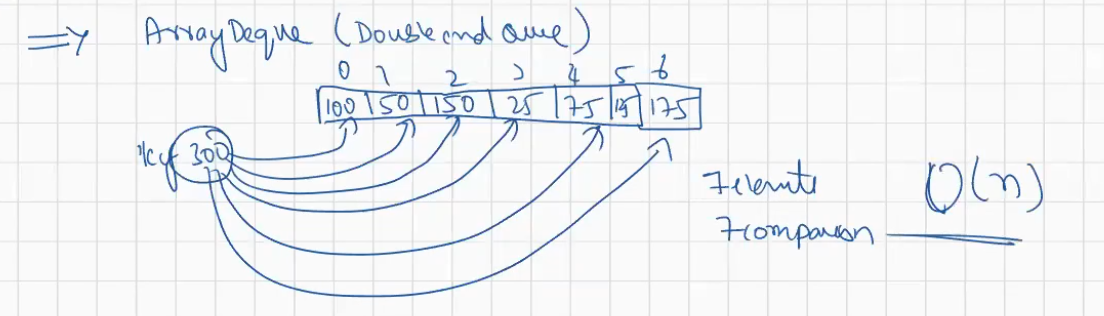 => ArrayDeque (Double end Queue)
0 1 2 3 4 5 6
100 50 150 25 75 15 175
key 300
7 elements O(n)
7 comparison